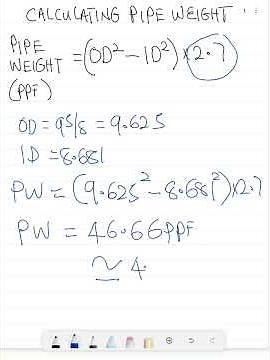 CALCULATING PIPE WEIGHT
PIPE
WEIGHT = (OD² - ID²) × 2.7
(PPF)
OD = 9 5/8 = 9.625
ID = 8.681
PW = (9.625² - 8.681²) × 2.7
PW = 46.66 PPF
≃ 4